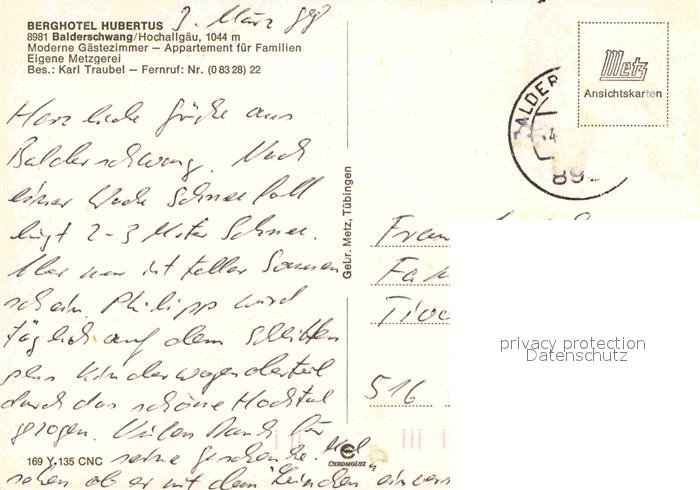 BERGHOTEL HUBERTUS
8981 Balderschwang/Hochallgäu, 1044 m
Moderne Gästezimmer — Appartement für Familien
Eigene Metzgerei
Bes.: Karl Traubel – Fernruf: Nr. (0 83 28) 22
3. März
Herzliche Grüße aus
Balderschwang. Nach
einer Woche Schneefall
liegt 2-3 Meter Schnee.
Aber nun ist toller Sonnen
schein. Philipp wird
täglich auf dem Schlitten
plus Kinderwagenoberteil
durch das schöne Hochtal
gezogen. Vielen Dank für
seine Geschenke.
sehen ob er mit dem
169 Y-135 CNC
CHROMOLUX
Gebr. Metz, Tübingen
Metz
Ansichtskarten
BALDER
4
895
516
privacy protection
Datenschutz